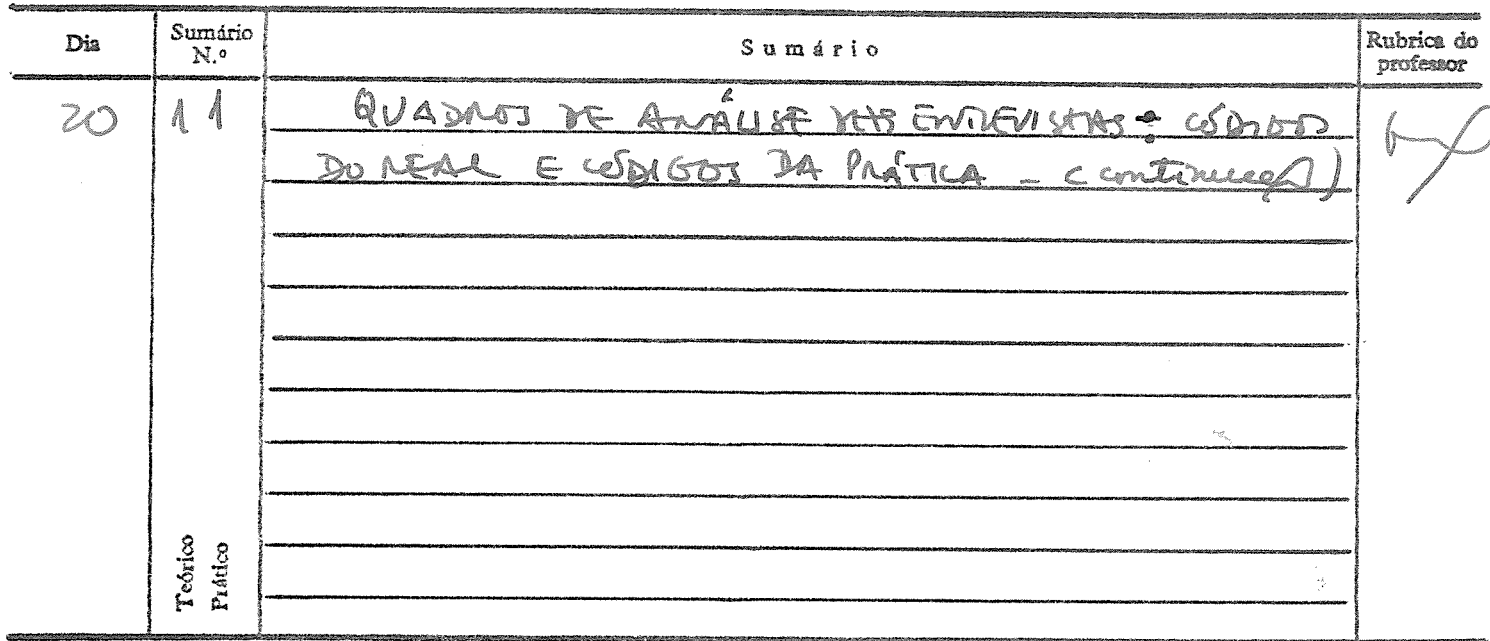 Dia
Sumário N.º
Sumário
Rubrica do professor
20
11
QUADROS DE ANÁLISE DAS ENTREVISTAS: CÓDIGOS
DO REAL E CÓDIGOS DA PRÁTICA - (continuação)
Teórico
Prático